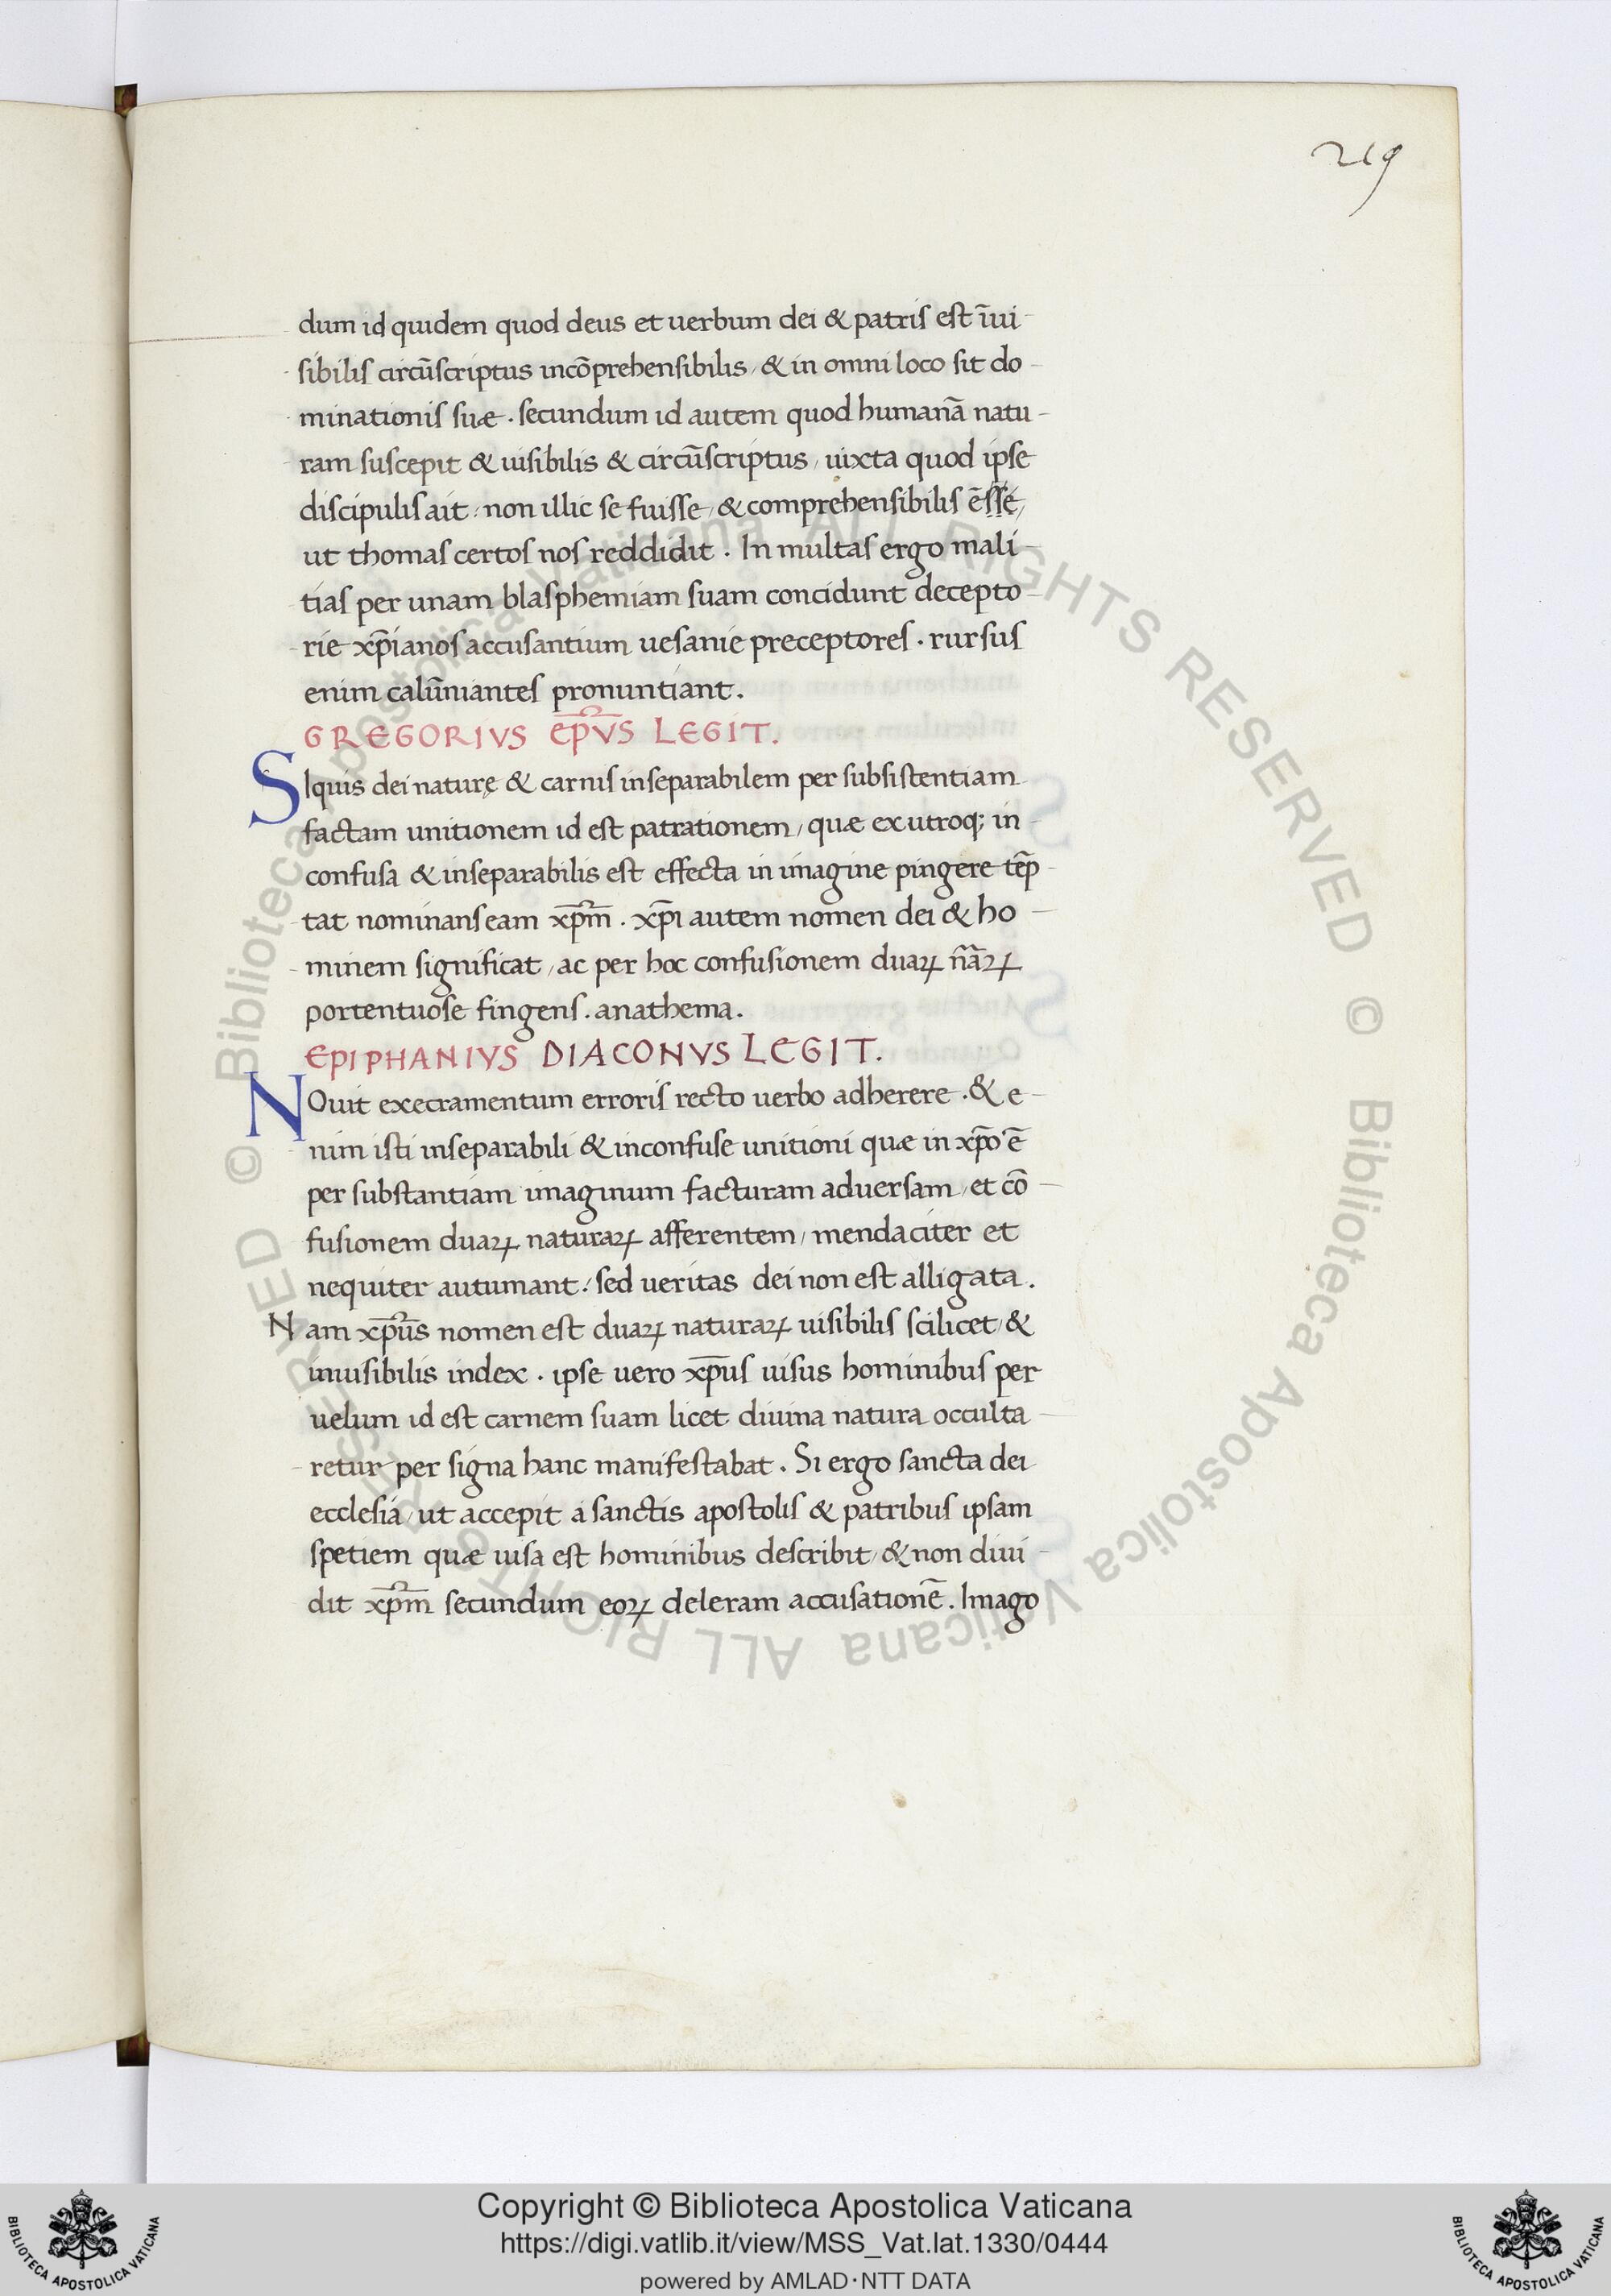 219
dum id quidem quod deus et uerbum dei & patris est īui
sibilis circūscriptus incōprehensibilis, & in omni loco sit do
minationis suæ. secundum id autem quod humanā natu
ram suscepit & uisibilis & circūscriptus, iuxta quod ipse
discipulis ait, non illic se fuisse, & comprehensibilis ēsse,
ut thomas certos nos reddidit. In multas ergo mali
tias per unam blasphemiam suam concidunt decepto
rie xp̄ianos accusantium uesanie preceptores. rursus
enim calūniantes pronuntiant.
GREGORIVS EP̄VS LEGIT.
SIquis dei naturę & carnis inseparabilem per subsistentiam
factam unitionem id est patrationem, quæ ex utroq; in
confusa & inseparabilis est effecta in imagine pingere tēp
tat nominans eam xp̄m. xp̄i autem nomen dei & ho
minem significat, ac per hoc confusionem duaꝝ nāꝝ
portentuose fingens. anathema.
EPIPHANIVS DIACONVS LEGIT.
NOuit execramentum erroris recto uerbo adherere. & e
nim isti inseparabili & inconfuse unitioni quæ in xp̄o ē
per substantiam imaginum facturam aduersam, et cō
fusionem duaꝝ naturaꝝ afferentem, mendaciter et
nequiter autumant. sed ueritas dei non est alligata.
Nam xp̄us nomen est duaꝝ naturaꝝ uisibilis scilicet, &
inuisibilis index. ipse uero xp̄us uisus hominibus per
uelum id est carnem suam licet diuina natura occulta
retur per signa hanc manifestabat. Si ergo sancta dei
ecclesia, ut accepit a sanctis apostolis & patribus ipsam
spetiem quæ uisa est hominibus describit, & non diui
dit xp̄m secundum eoꝝ deleram accusationē. Imago
© Biblioteca Apostolica Vaticana ALL RIGHTS RESERVED © Biblioteca Apostolica Vaticana ALL RIGHTS RESERVED
Copyright © Biblioteca Apostolica Vaticana
https://digi.vatlib.it/view/MSS_Vat.lat.1330/0444
powered by AMLAD·NTT DATA
BIBLIOTECA APOSTOLICA VATICANA
BIBLIOTECA APOSTOLICA VATICANA